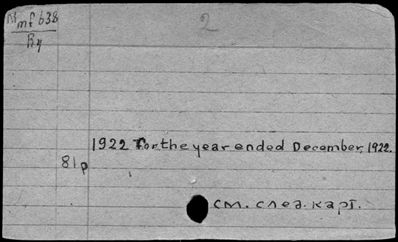 2
1922 For the year ended December, 1922.
81p
см. след. карт.